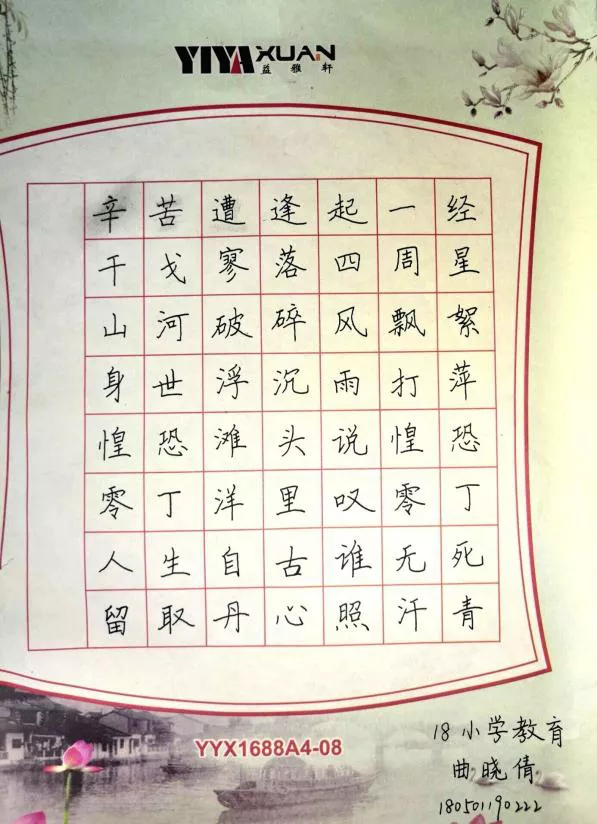 YIYAXUAN
益雅轩
辛苦遭逢起一经
干戈寥落四周星
山河破碎风飘絮
身世浮沉雨打萍
惶恐滩头说惶恐
零丁洋里叹零丁
人生自古谁无死
留取丹心照汗青
YYX1688A4-08
18小学教育
曲晓倩
180501190222